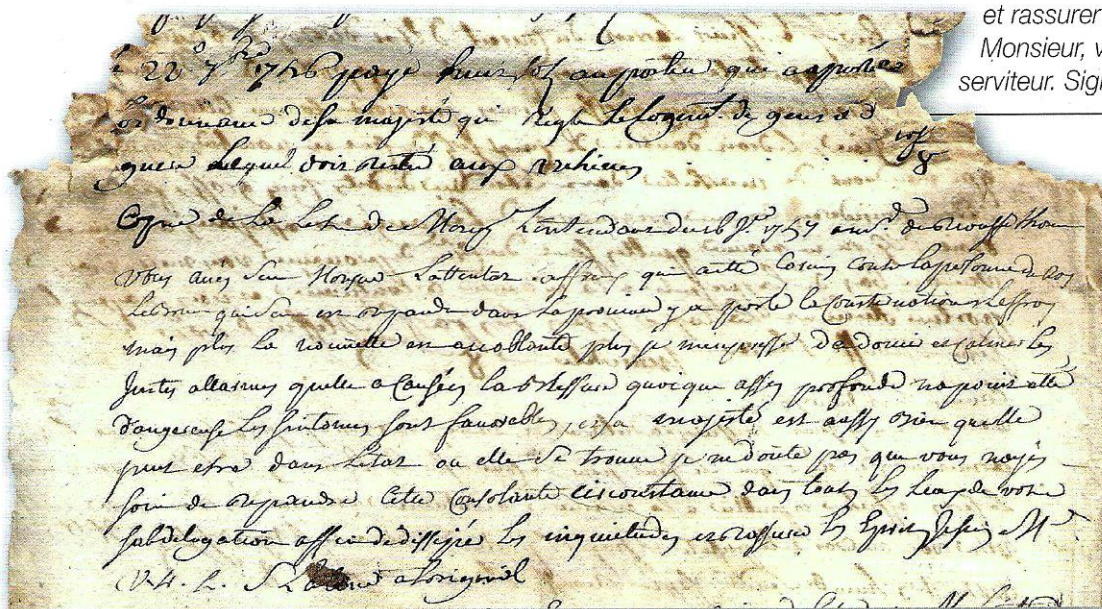 et rassurer
Monsieur, v
serviteur. Sig
22e 7bre 1756 payé huit sols au porteur qui a aporté
Lordonnance de sa majesté qui Regle le Logemt. de gens de
guere Lequel doit resté aux archives
Copie de La Letre de Monsr Lintendant du 16 Jer 1757 a Mr. de
Vous aves seu Monsieur Lattentat affreux qui a été Comis Contre la personne du Roy
Le bruit qui s'en est repandu dans La province y a porté la Consternation et Leffroy
mais plus la nouvelle en accablante plus je mempresse dadoucir et Calmer les
Justes allarmes quelle a Causées la blessure quoique asses profonde na point été
dangereuse les simtomes sont favorables, et sa majesté est aussy bien quelle
peut etre dans Letat ou elle se trouve je ne doute pas que vous nayés
soin de repandre Cette Consolante circonstance dans tous les lieux de votre
subdelegation affin de dissiper les inquietudes et rassurer les Esprits Je suis Mr
V. t. h. S. a Loriginal